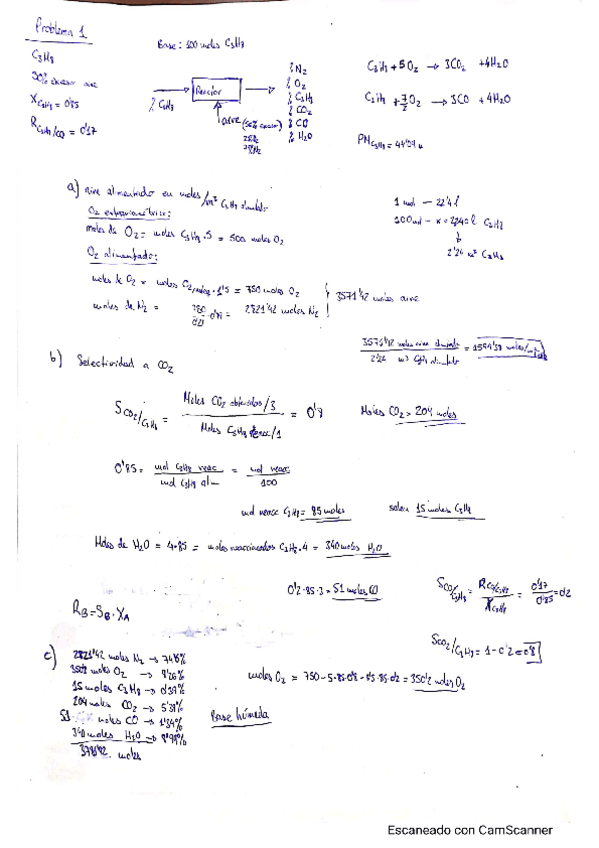 Problema 1
C3H8
50% exceso aire
X C3H8 = 0'85
R C3H8/CO = 0'17
Base: 100 moles C3H8
% C3H8
Reactor
aire (50% exceso)
% N2
% O2
% C3H8
% CO2
% CO
% H2O
C3H8 + 5O2 → 3CO2 + 4H2O
C3H8 + 7/2 O2 → 3CO + 4H2O
PM C3H8 = 44'09
a) aire alimentado en moles/m³ C3H8 alimentado
O2 estequiométrico:
moles de O2 = moles C3H8 · 5 = 500 moles O2
O2 alimentado:
moles de O2 = moles O2 · 1'5 = 750 moles O2
moles de N2 = 750/0'21 · 0'79 = 2821'42 moles N2
3571'42 moles aire
1 mol — 22'4 l
100 mol — x = 2240 l C3H8
2'24 m³ C3H8
3571'42 moles aire / 2'24 m³ C3H8 alimentado = 1594'38 moles/m³
b) Selectividad a CO2
S CO2/C3H8 = Moles CO2 obtenidos/3 / Moles C3H8 reacc/1 = 0'8
Moles CO2 = 204 moles
0'85 = mol C3H8 reacc / mol C3H8 alim = mol reacc / 100
mol reacc C3H8 = 85 moles
salen 15 moles C3H8
Moles de H2O = 4·85 = moles reaccionados C3H8 · 4 = 340 moles H2O
0'2·85·3 = 51 moles CO
S CO/C3H8 = R CO/C3H8 / X C3H8 = 0'17/0'85 = 0'2
RB = SB · XA
S CO2/C3H8 = 1 - 0'2 = 0'8
c) 2821'42 moles N2 → 74'8%
moles O2 → 9'26%
15 moles C3H8 → 0'39%
204 moles CO2 → 5'39%
51 moles CO → 1'34%
340 moles H2O → 8'99%
moles
Base húmeda
moles O2 = 750 - 5·85·0'8 - = 350'2 moles O2
Escaneado con CamScanner